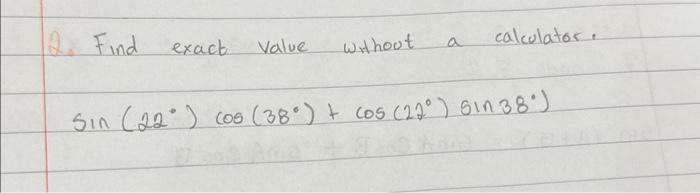 2. Find exact value without a calculator.
sin (22°) cos (38°) + cos (22°) sin 38°)